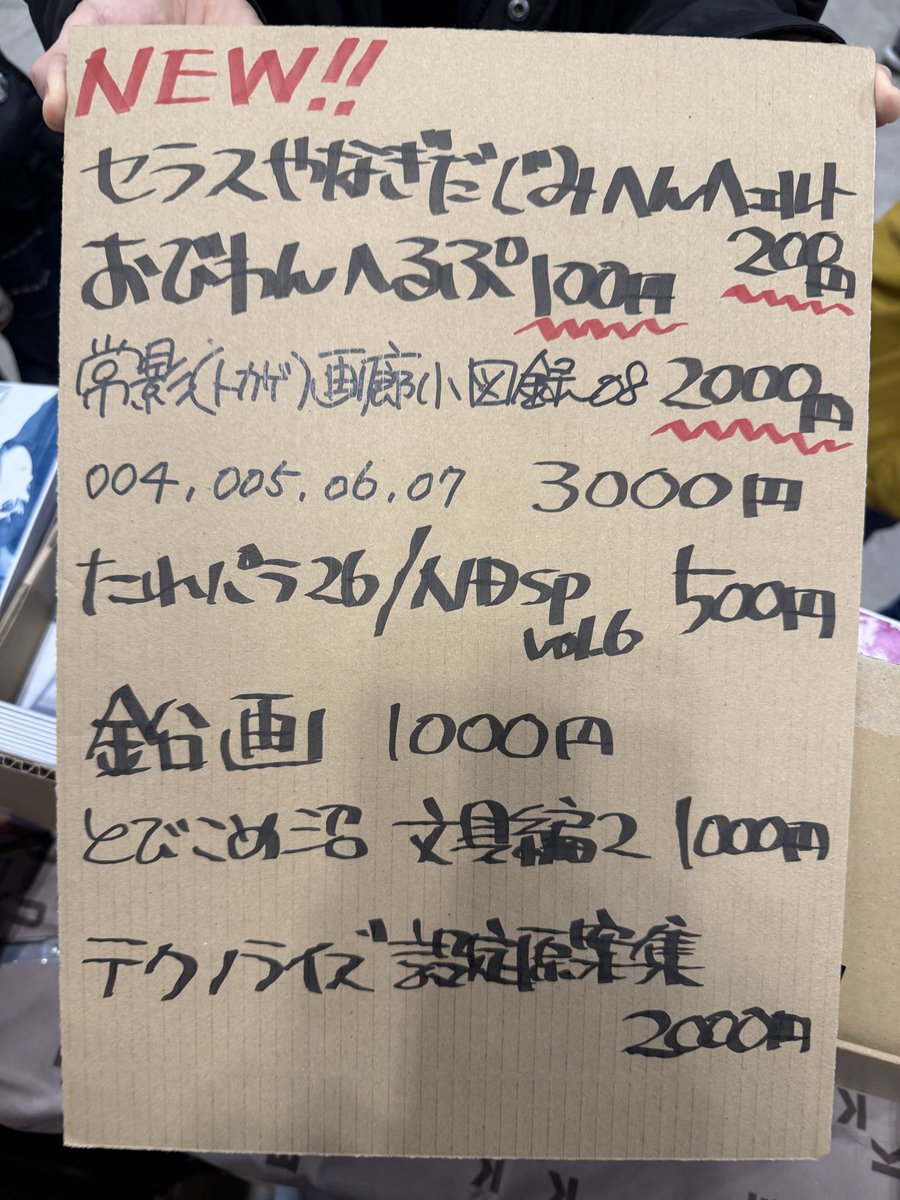 NEW!!
セラスやなぎだじみへんヘェルト
200円
おびわんへるぷ 100円
常影(トカゲ)画廊小図録08 2000円
004,005,06,07 3000円
たれパラ26/NAsp 500円
vol.6
鉛画 1000円
とびこめ沼 文具編2 1000円
テクノライズ 設定原案集
2000円